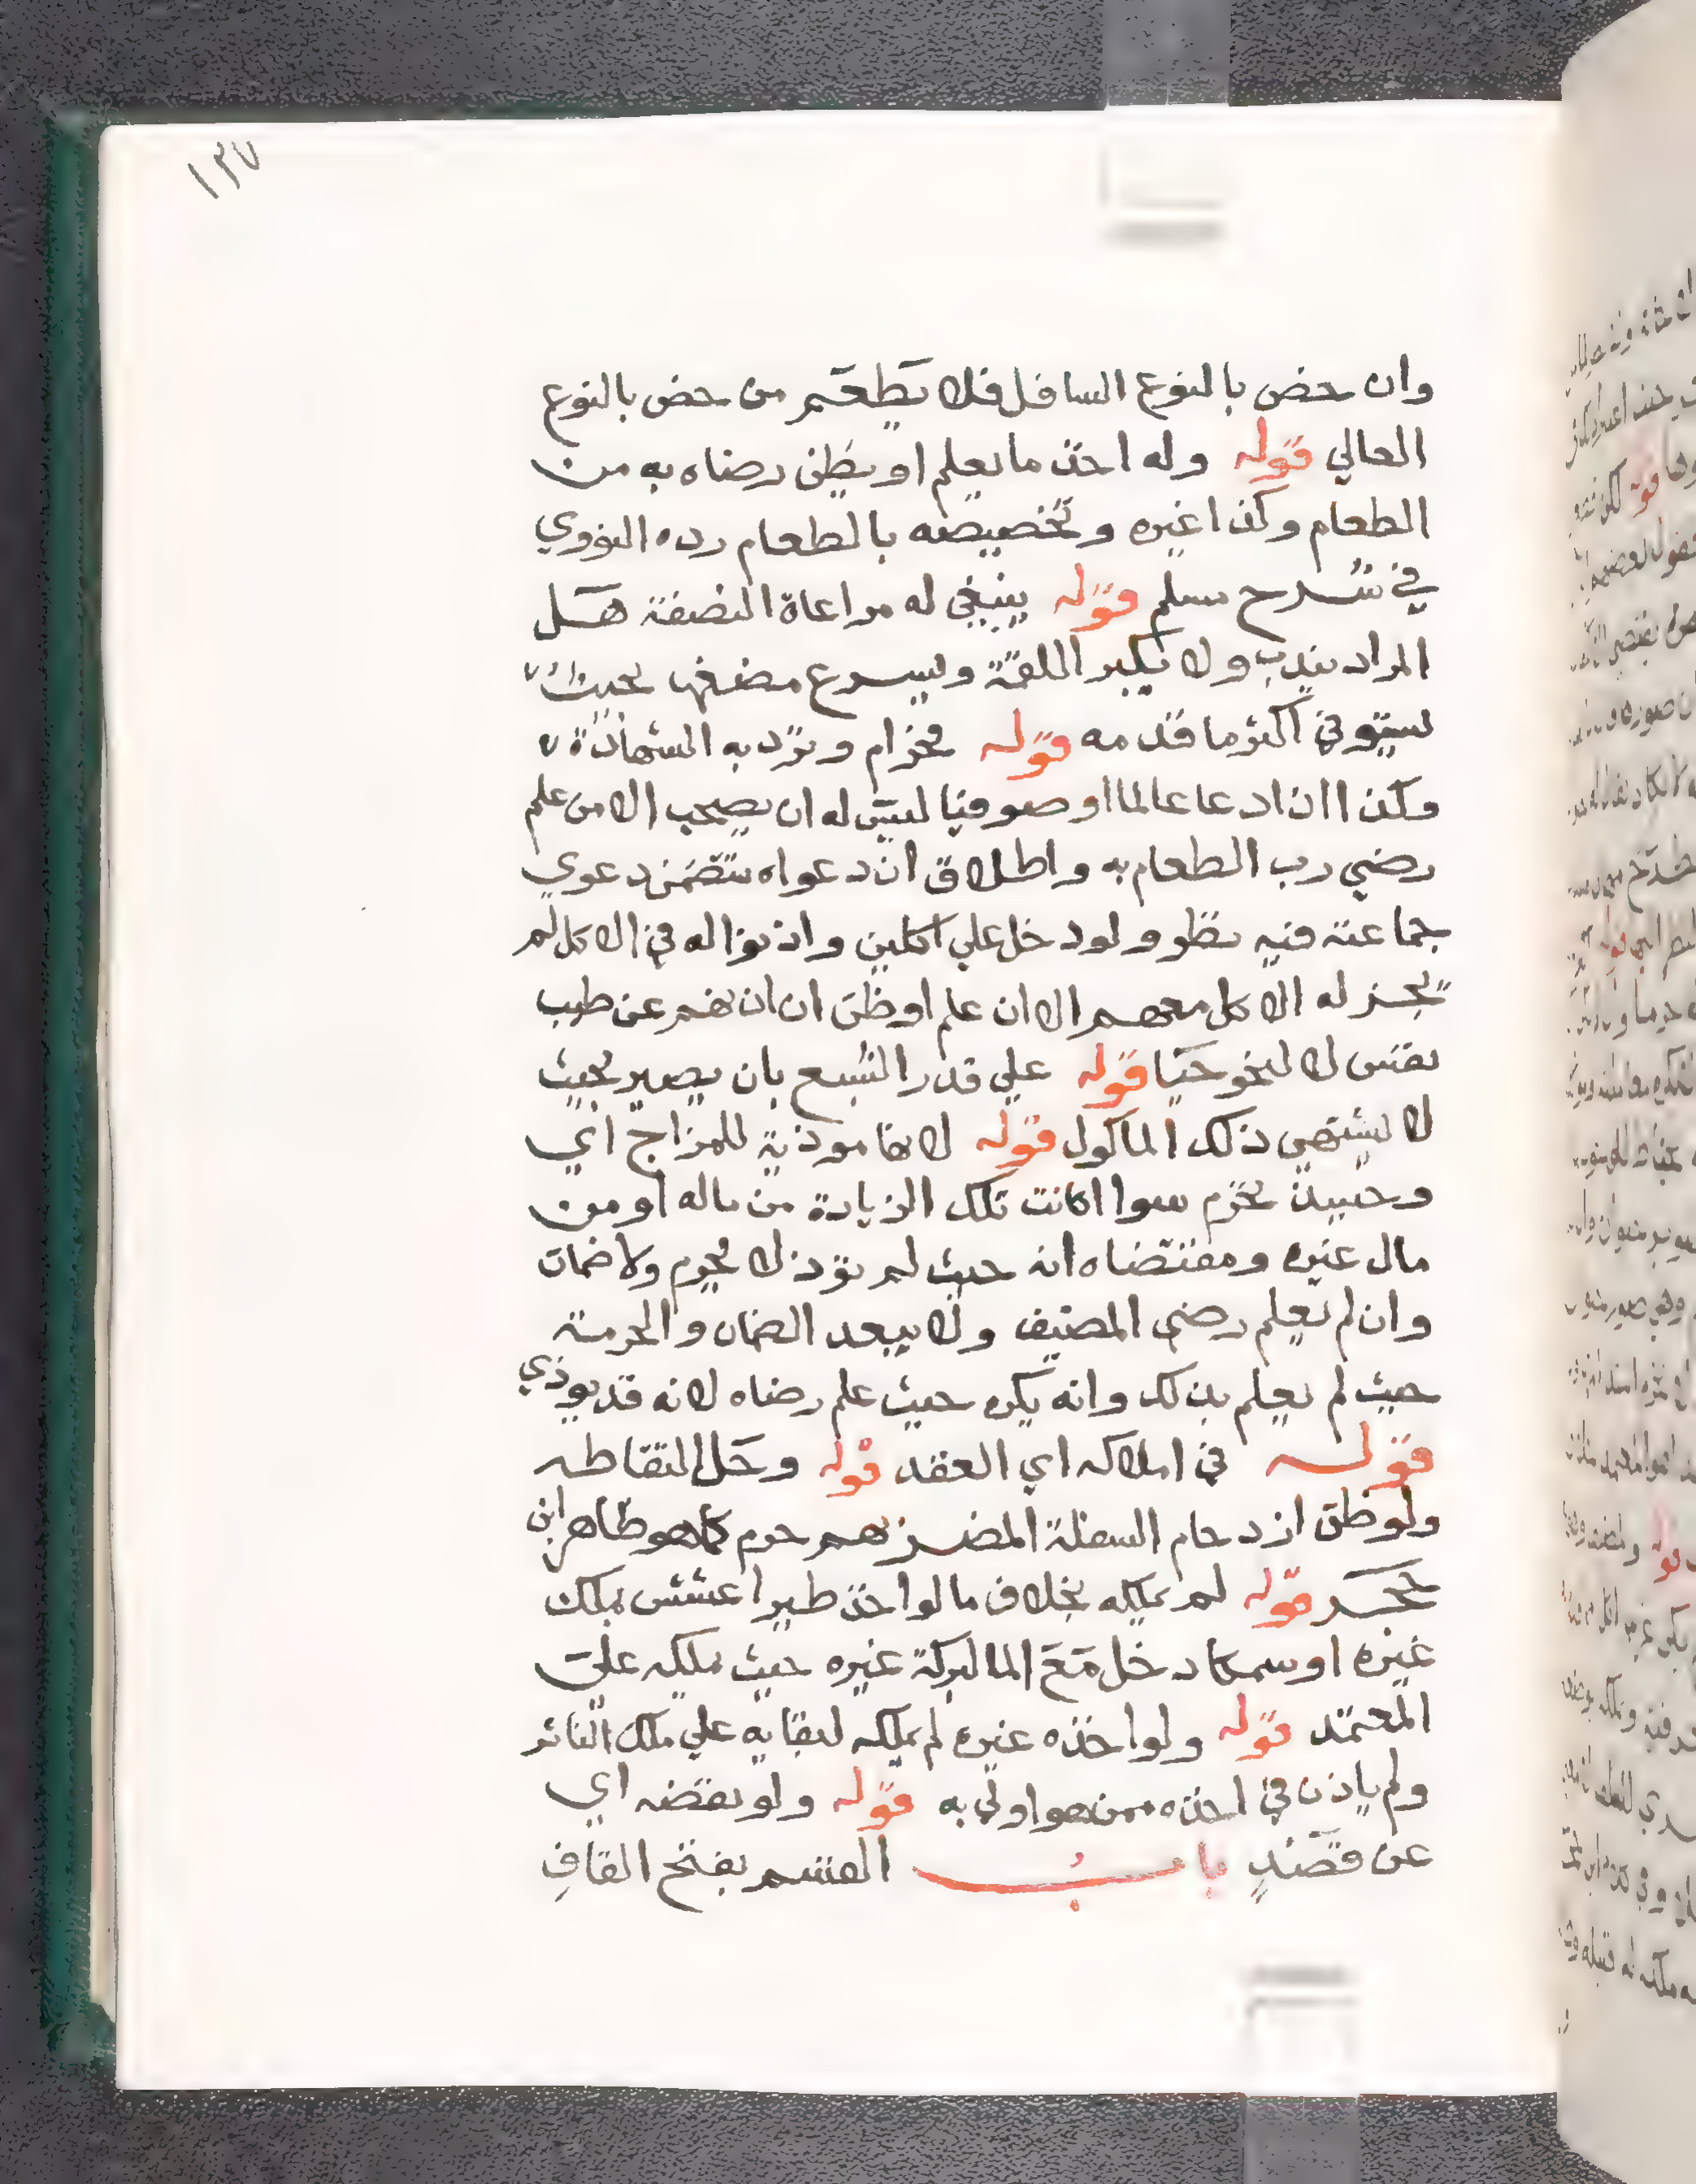 ١٣٧
وان خص بالنوع السافل فلا يطعم من خص بالنوع
العالي قوله وله اخذ ما يعلم او يظن رضاه به من
الطعام وكذا غيره وتخصيصه بالطعام رده النووي
في شرح مسلم قوله ينبغي له مراعاة النصفة هل
المراد يندب ولا يكبر اللقمة ويسرع مضغها بحيث
يستوفي اكثر ما قدمه قوله فحرام وترد به الشهادة
وكذا ان ادعا عالما او صوفيا ليس له ان يصحب الا من علم
رضي رب الطعام به واطلاق ان دعواه تتضمن دعوي
جماعته فيه نظر ولو دخل علي اكلين واذنوا له في الاكل لم
يجز له الاكل معهم الا ان علم او ظن ان اذنهم عن طيب
نفس لا لنحو حيا قوله علي قدر الشبع بان يصير بحيث
لا يشتهي ذلك الماكول قوله لانها موذية للمزاج اي
وحينيذ يحرم سوا اكانت تلك الزيادة من ماله او من
مال غيره ومقتضاه انه حيث لم توذ لا يحرم ولا ضمان
وان لم يعلم رضي المضيف ولا يبعد الضمان والحرمة
حيث لم يعلم بذلك وانه يكره حيث علم رضاه لانه قد يوذي
قوله في املاكه اي العقد قوله وحل التقاطه
ولو ظن ازدحام السفلة المضر بهم حرم كما هو ظاهر ابن
حجر قوله لم يملكه بخلاف ما لو اخذ طيرا عشش بملك
غيره او سمكا دخل مع الما لبركة غيره حيث يملكه علي
المعتمد قوله ولو اخذه غيره لم يملكه لبقايه علي ملك الناثر
ولم ياذن في اخذه من هو اولي به قوله ولو نفضه اي
عن قصد باب القسم بفتح القاف